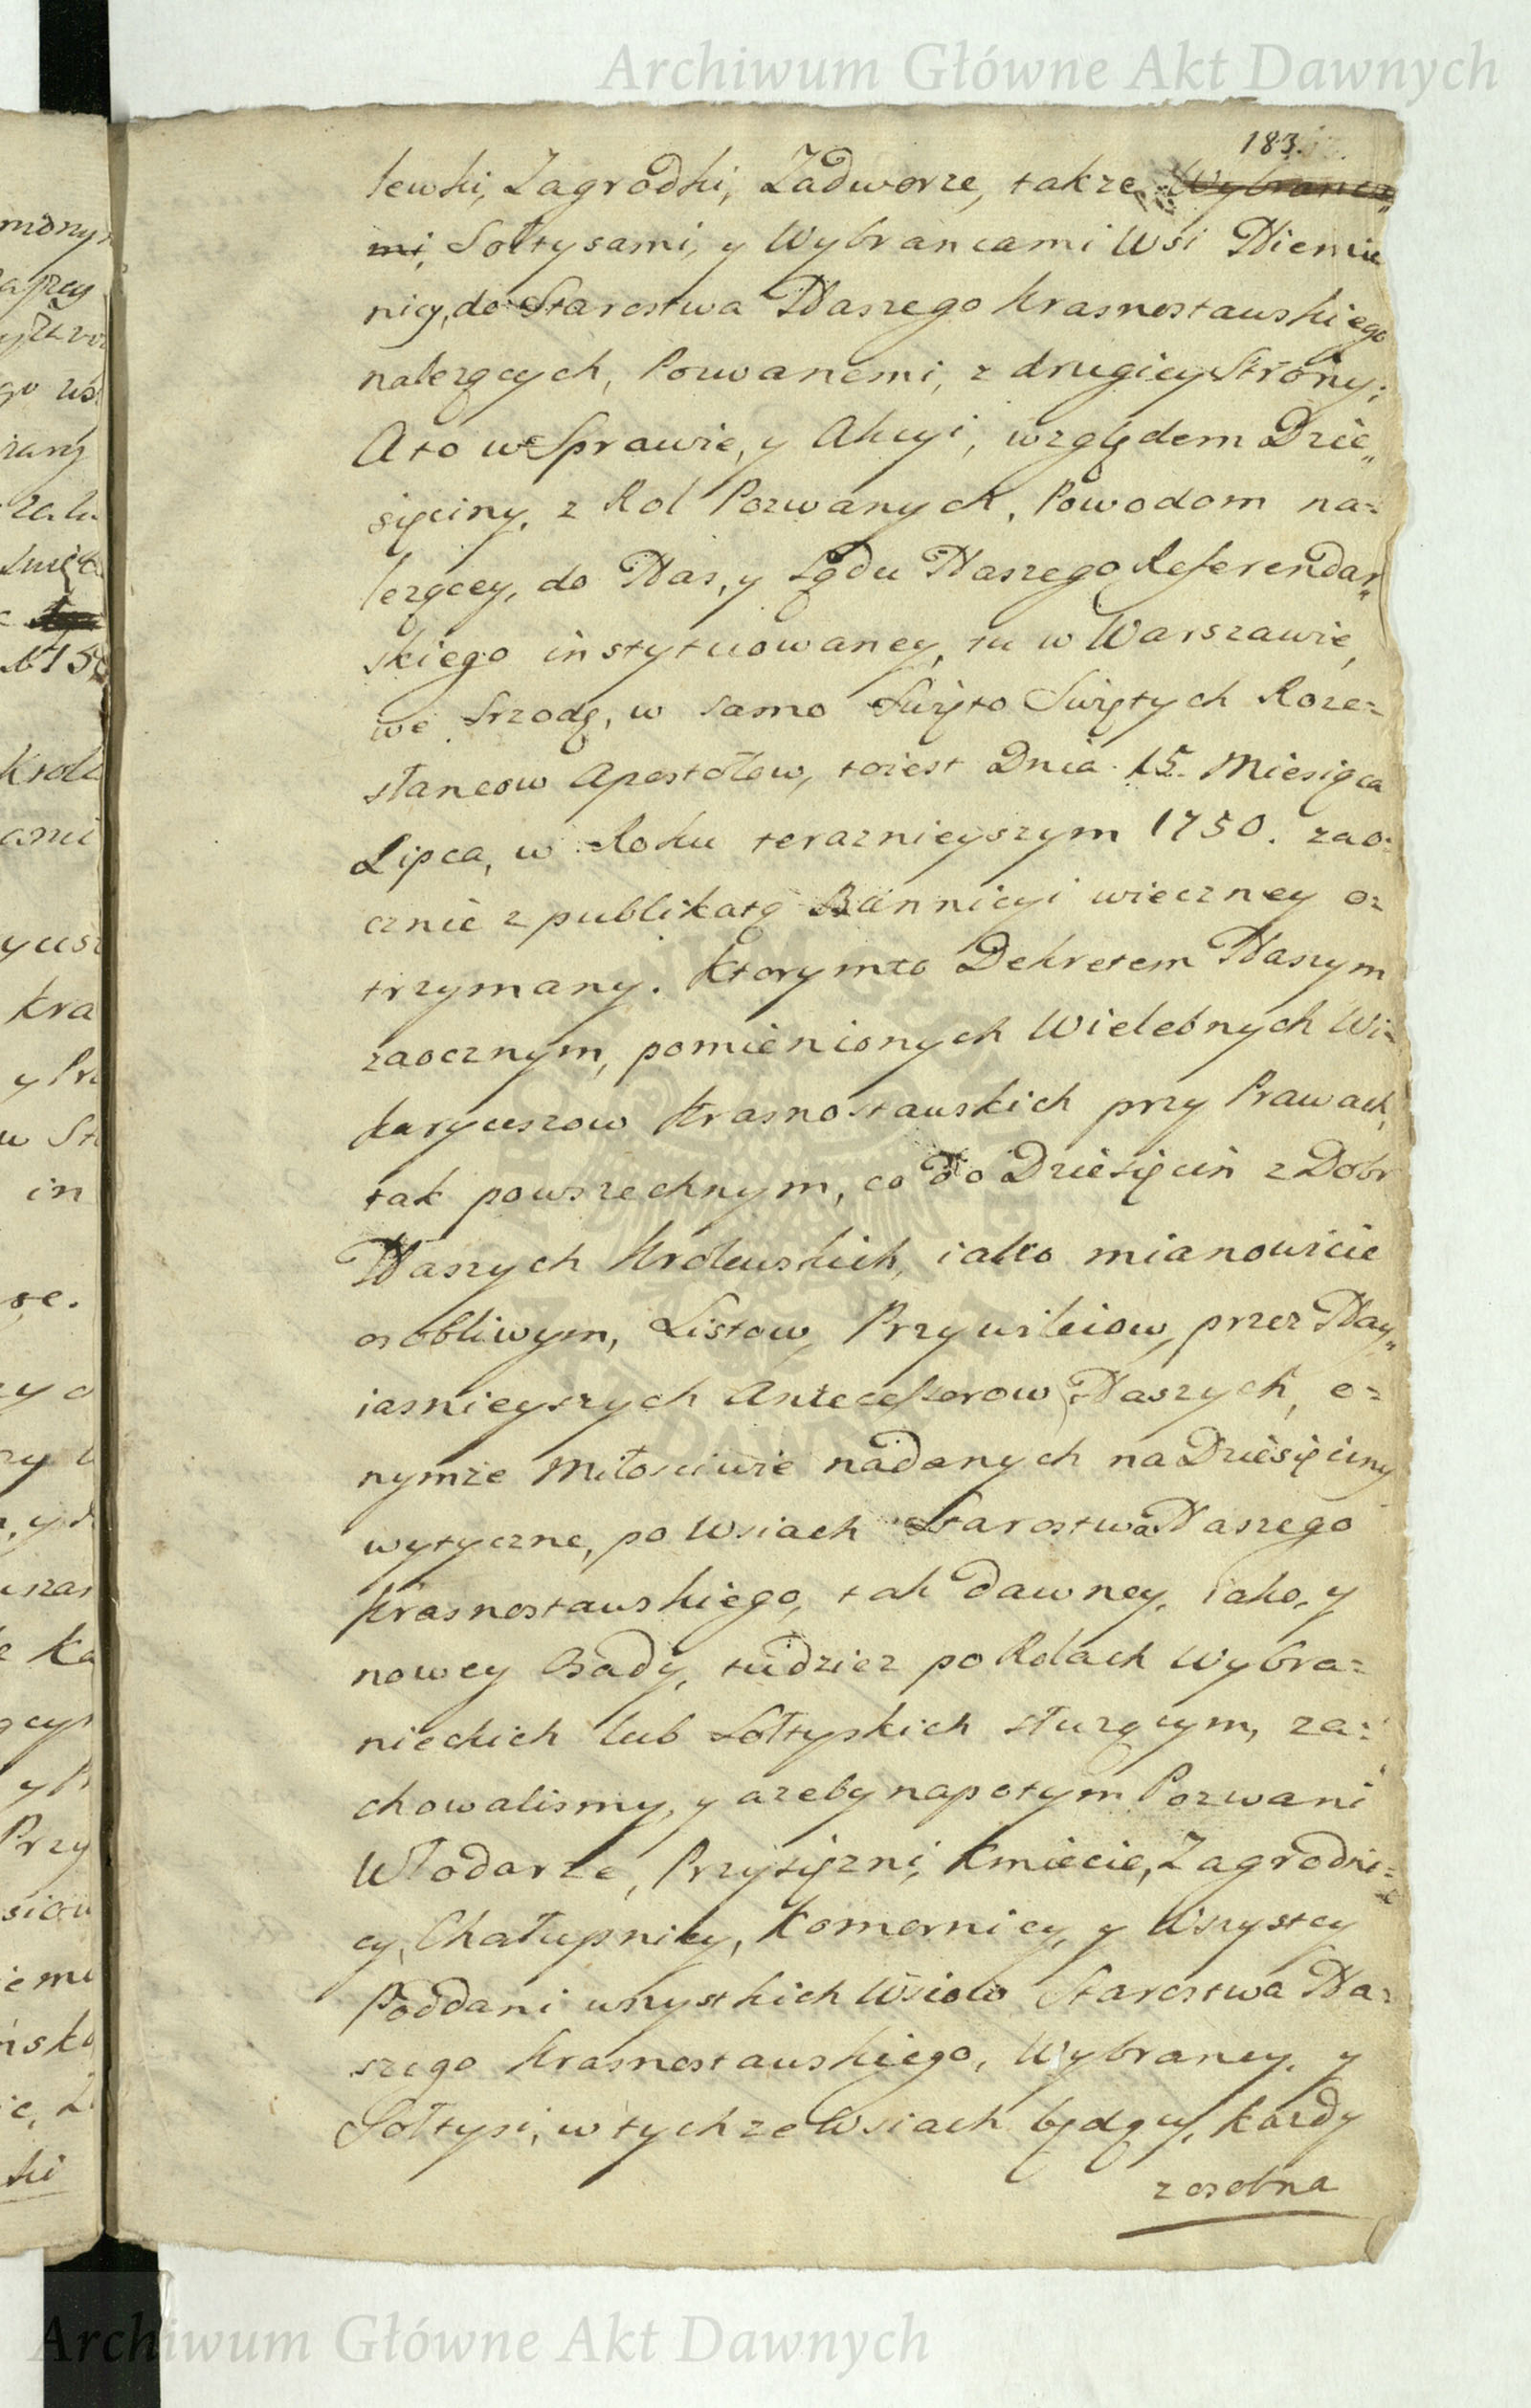 Archiwum Główne Akt Dawnych
183.
lewki, Zagrodki, Zadworze, takze Wybrancа„
mi, Sołtysami, y Wybrancami Wsi Niemie
nicy, do Starostwa Naszego Krasnostawskiego
nalezących, Pozwanemi, z drugiey Strony;
A to w Sprawie, y Akcyi, względem Dzie„
sięciny, z Rol Pozwanych, Powodom na=
lezącey, do Nas, y Sądu Naszego Referendar„
skiego instytuowaney, tu w Warszawie,
we Srzodę, w samo Swięto Swiętych Roze=
słancow Apostołow, toiest Dnia 15. Miesiąca
Lipca, w Roku teraznieyszym 1750. zao=
cznie z publikatą Bannicyi wieczney o=
trzymany. Ktorymto Dekretem Naszym
zaocznym, pomienionych Wielebnych Wi=
karyuszow Krasnostawskich przy Prawach,
tak powszechnym, co do Dziesięcin z Dobr
Naszych Krolewskich, iako mianowicie
osobliwym, Listow, Przywileiow, przez Nay„
iasnieyszych Antecessorow Naszych, o=
nymze Miłosciwie nadanych na Dziesięciny
wytyczne, po Wsiach Starostwa Naszego
Krasnostawskiego, tak dawney, iako, y
nowey Osady, tudziez po Rolach Wybra=
nieckich lub Sołtyskich słuzącym, za=
chowalismy, y azeby napotym Pozwani
Włodarze, Przysięzni, Kmiecie, Zagrodni=
cy, Chałupnicy, Komornicy, y Wszystcy
Poddani wszystkich Wsiow Starostwa Na=
szego Krasnostawskiego, Wybrancy, y
Sołtysi, w tychze Wsiach będący, kazdy
zosobna
Archiwum Główne Akt Dawnych